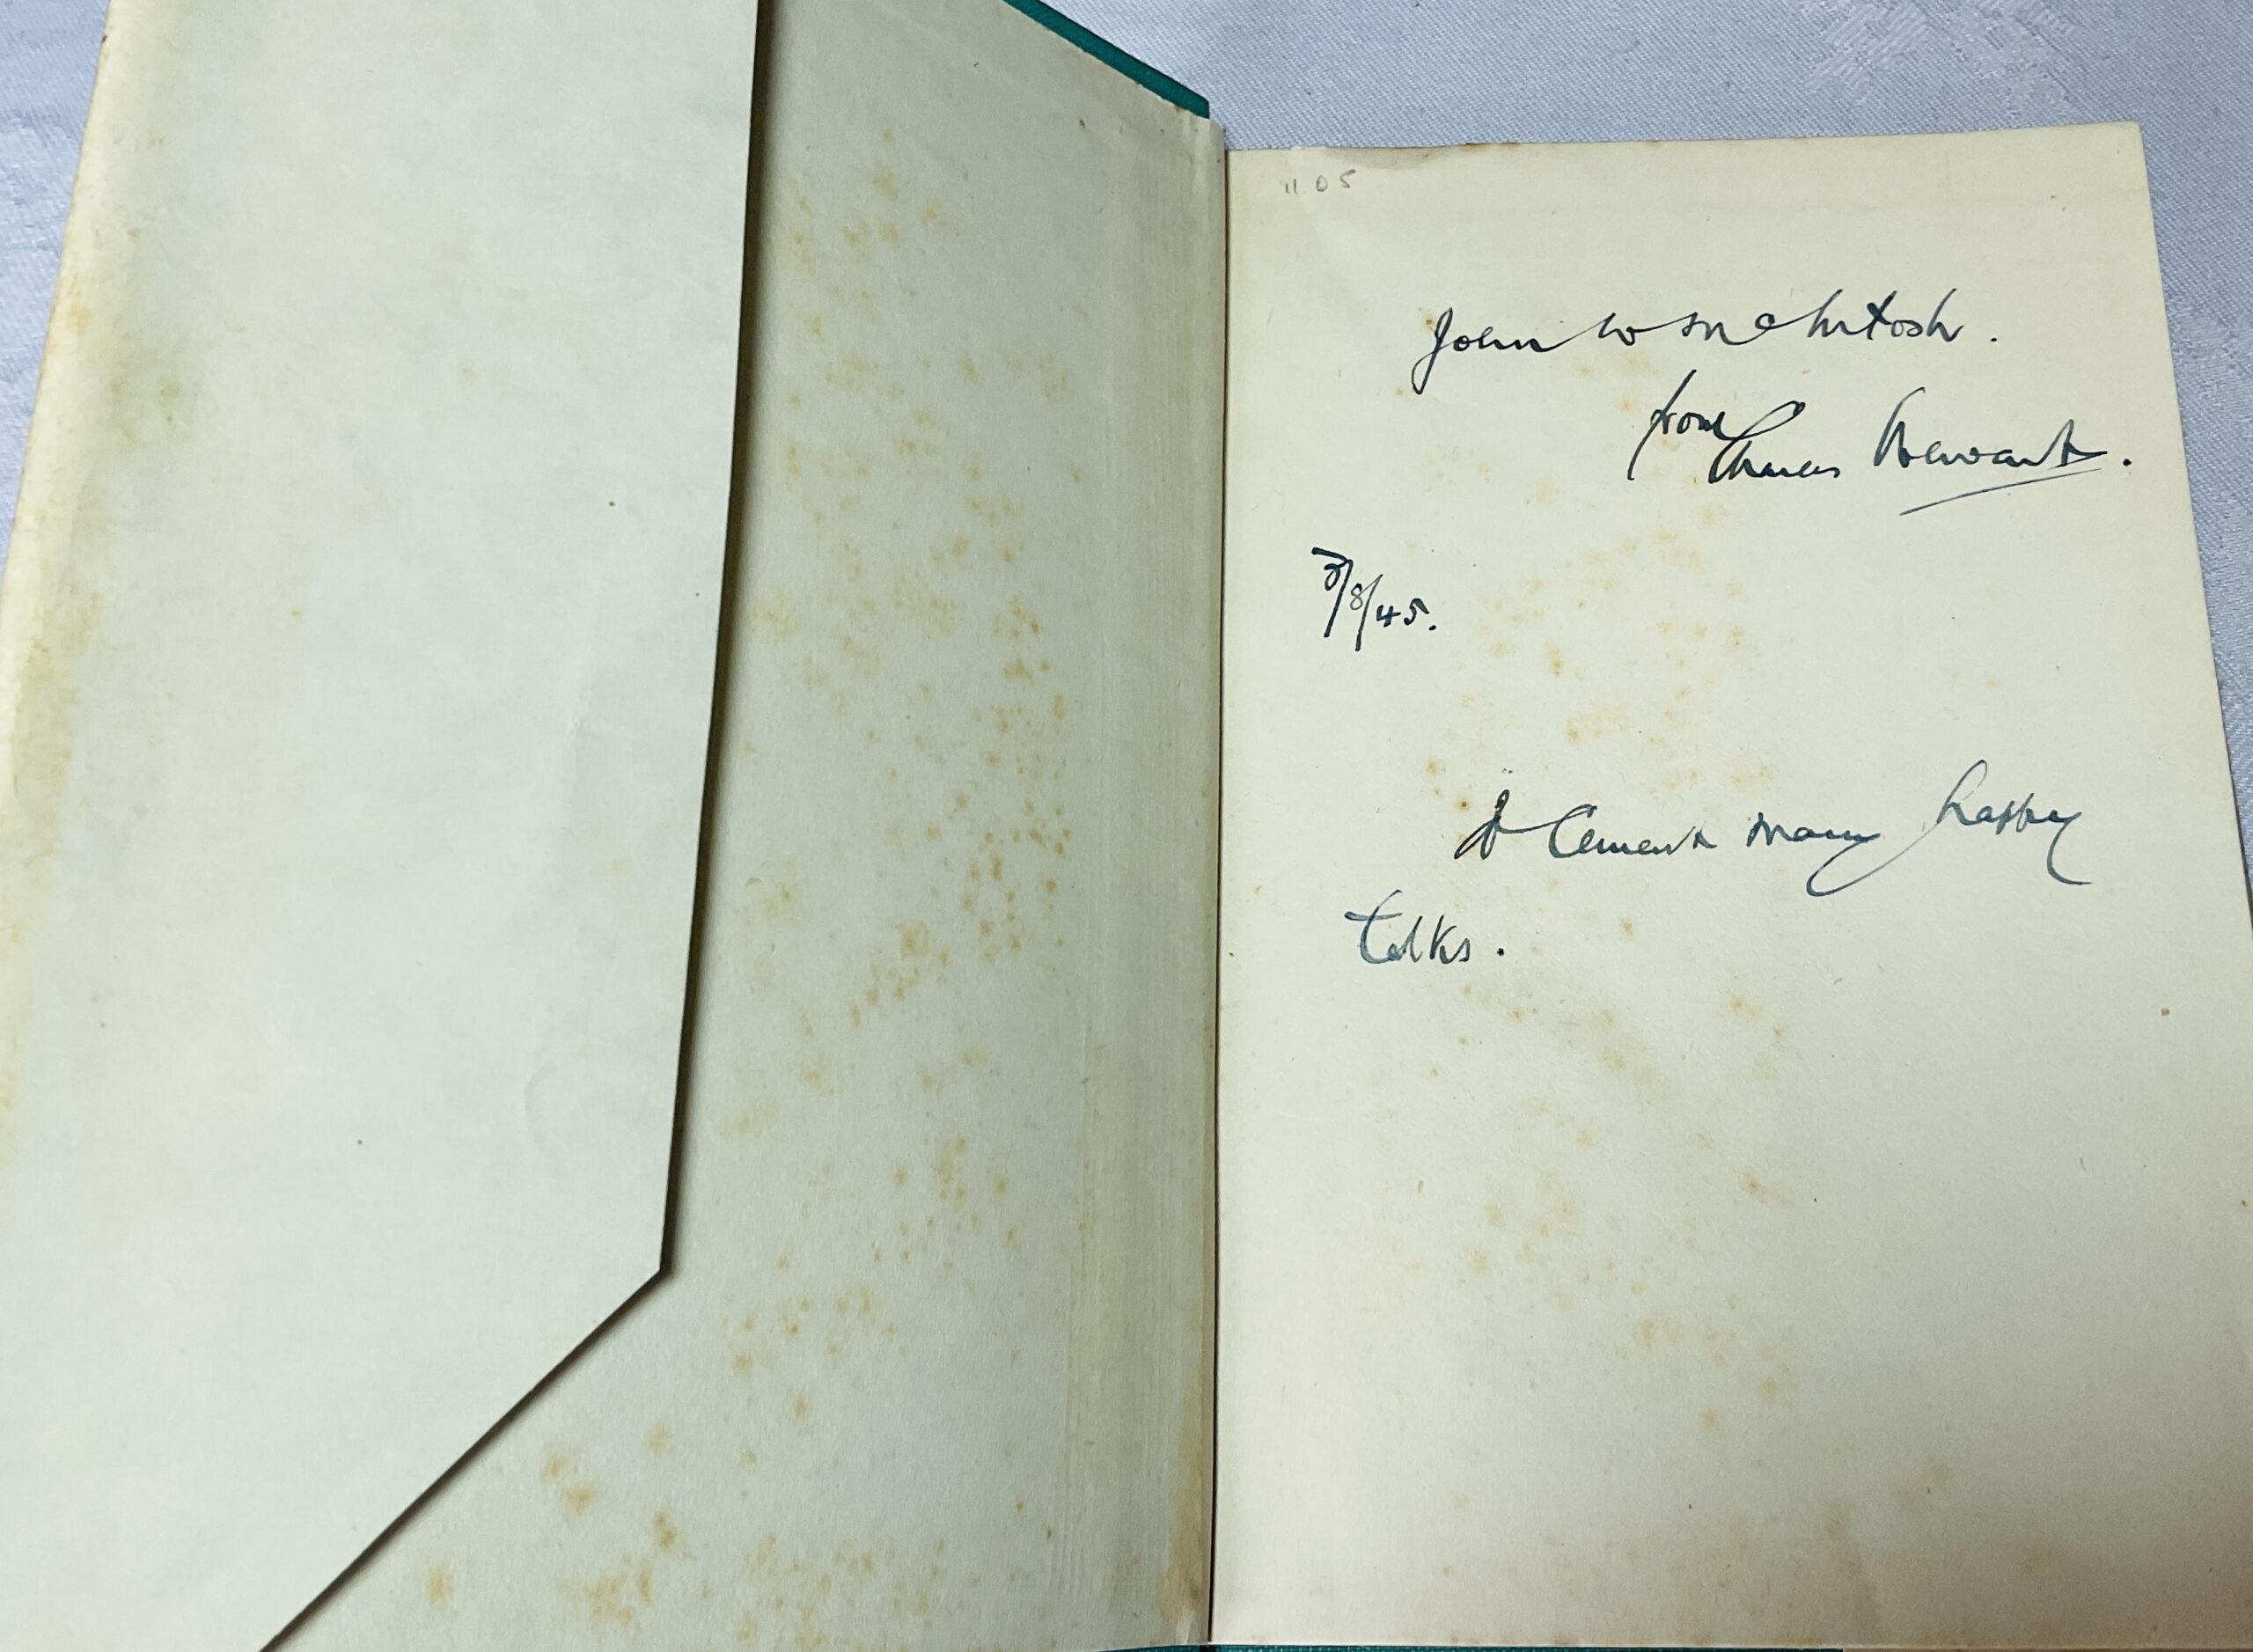 1105
John W McIntosh.
from
Charles Stewart.
3/8/45.
To Cement many happy
talks.